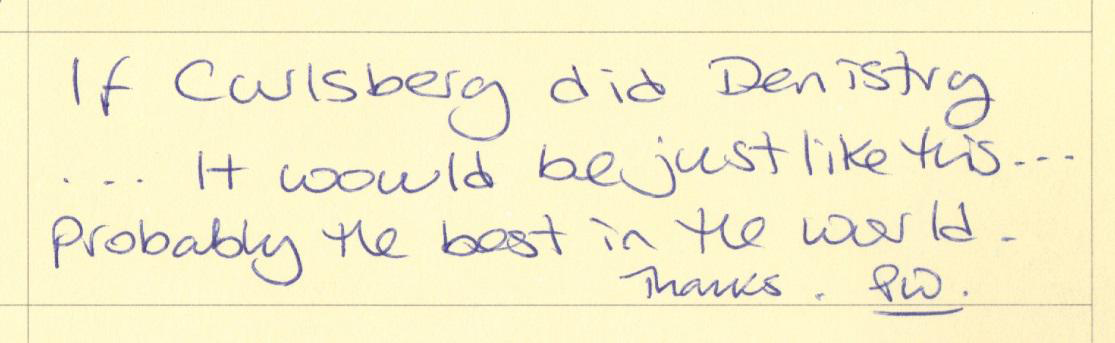 If Carlsberg did Denistry
... It woould be just like this...
probably the best in the world.
Thanks. PW.